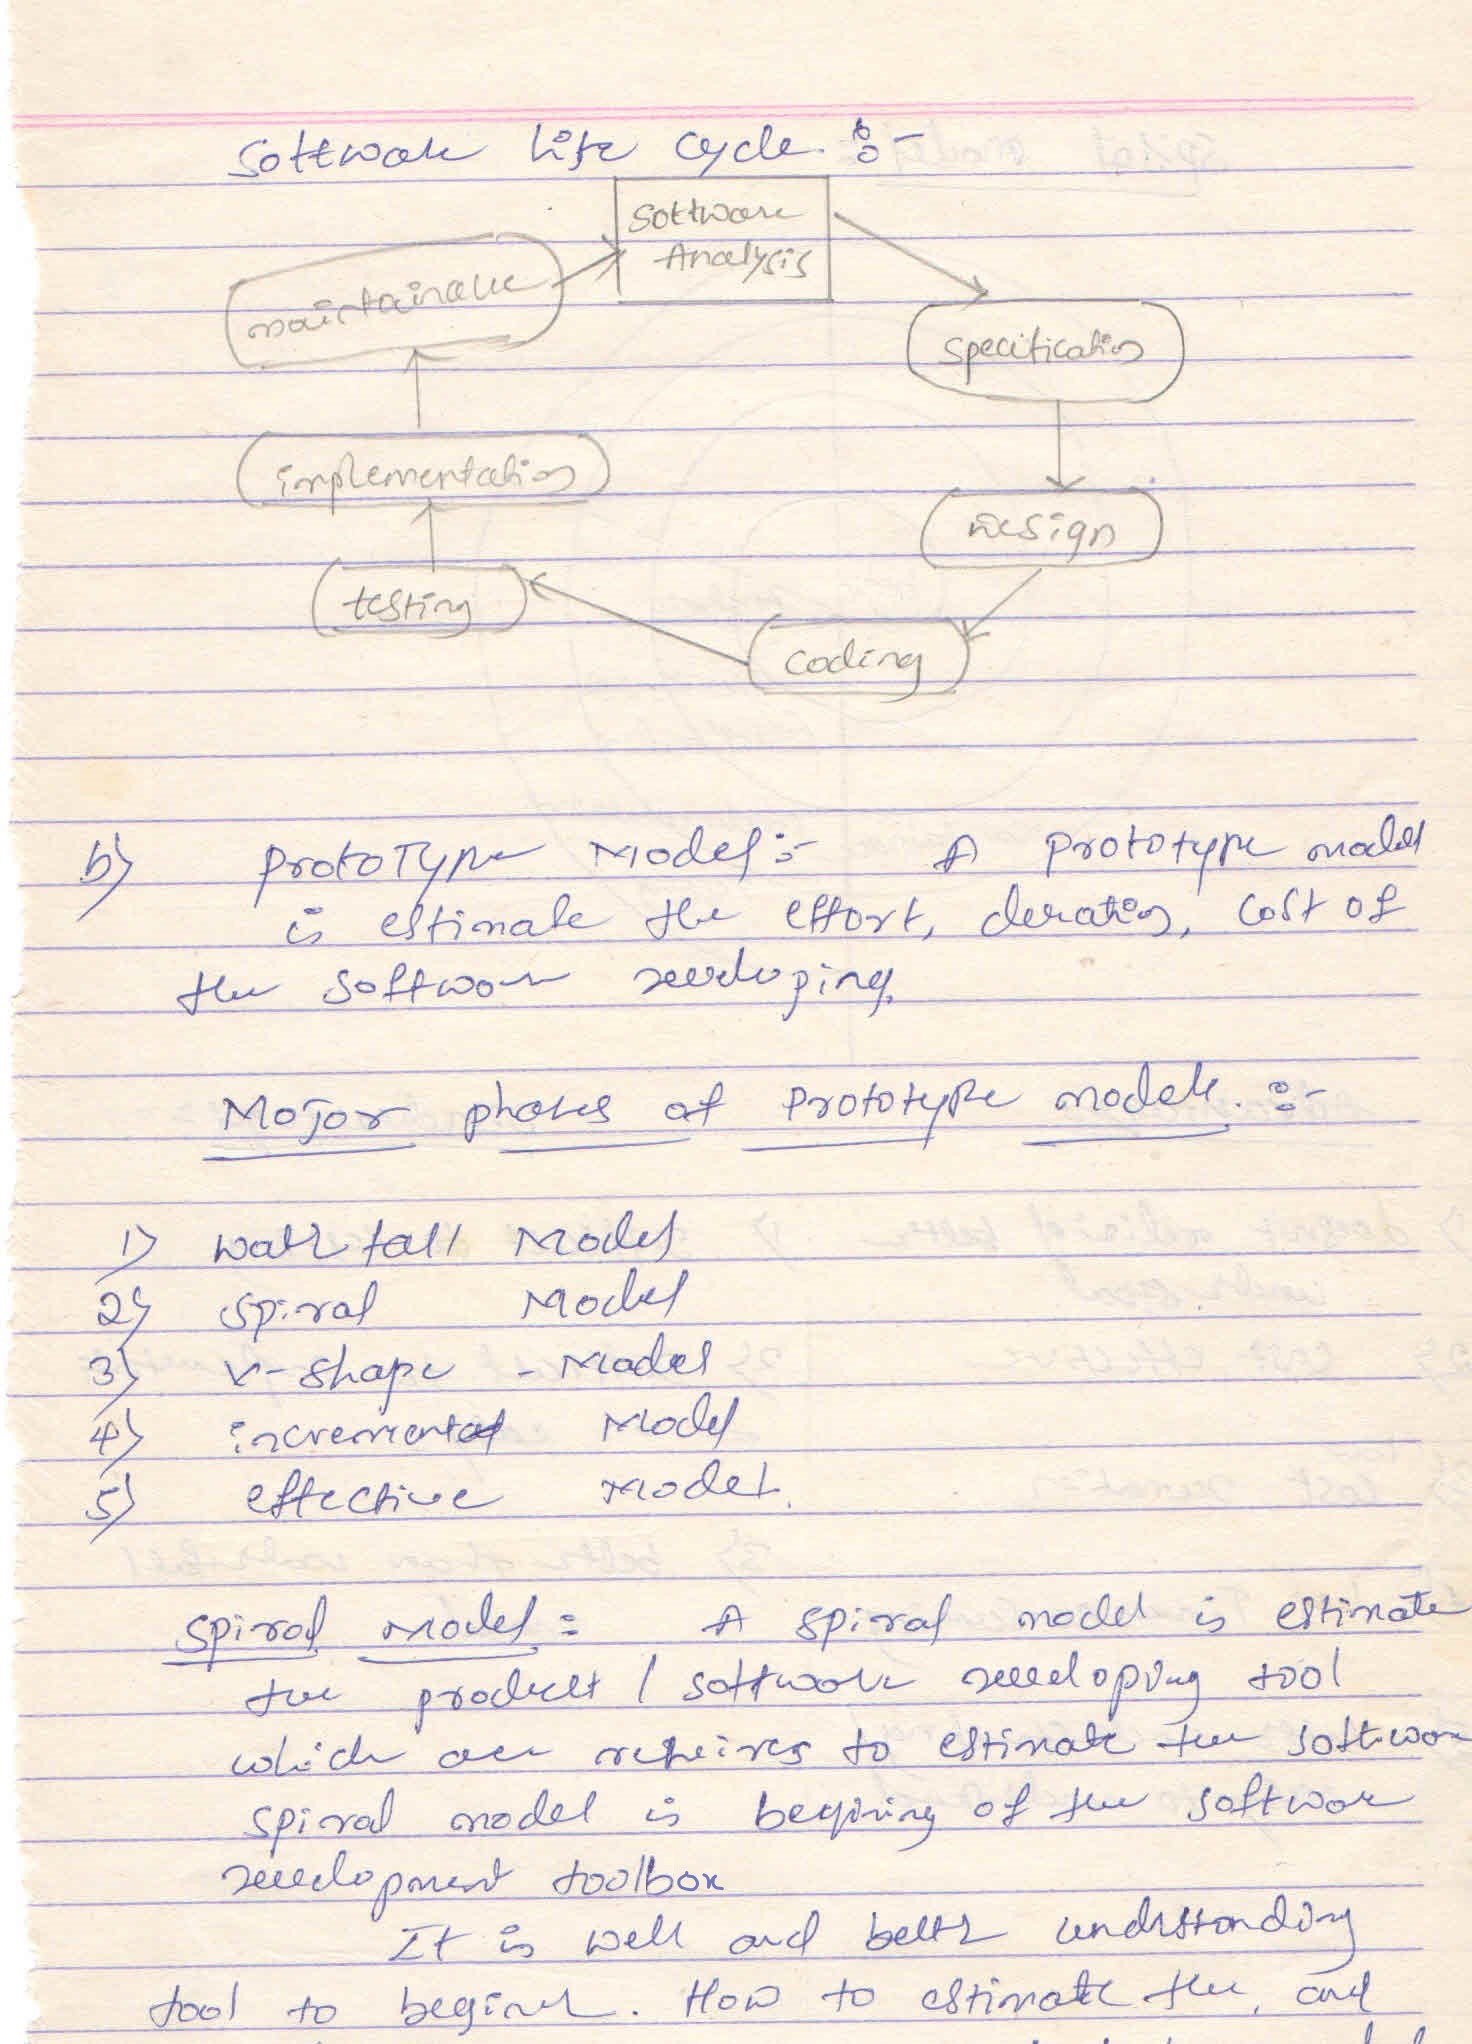 Software Life Cycle :-
Software
Analysis
maintainance
specification
implementation
Design
testing
coding
b) Prototype Model :- A prototype model
is estimate the effort, duration, cost of
the software developing.
Major phases of Prototype models. :-
1) water fall Model
2) spiral Model
3) v-shape - Model
4) incremental Model
5) effective Model.
Spiral Model : A spiral model is estimate
the product / software developing tool
which are requires to estimate the software
spiral model is begining of the software
development toolbox
It is well and better understanding
tool to beginer. How to estimate the, and